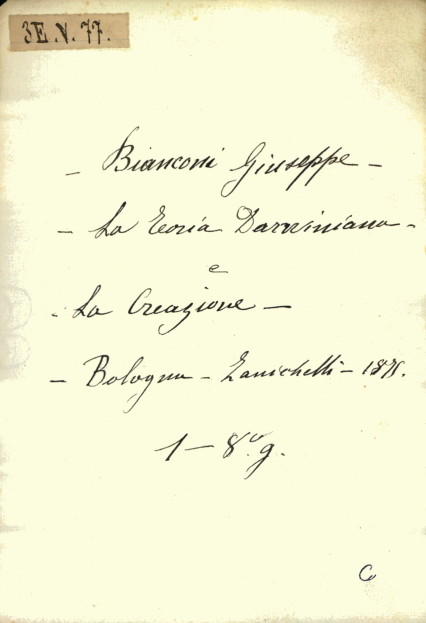 3E.N.77.
– Bianconi Giuseppe –
– La Teoria Darwiniana –
e
– La Creazione –
– Bologna – Zanichelli –
1 – 8.º g.
C